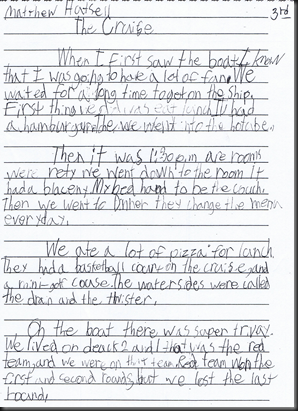 Matthew Hodsell 3rd
The Cruise
When I first saw the boat I know
that I was going to have a lot of fun. We
waited for a long time to get on the ship.
First thing we did was eat lunch I had
a hamburger the we went into the hotube.
Then it was 1:30 pm are rooms
were rety we went down to the room It
had a blaceny My bed hand to be the couch.
Then we went to Dinner they change the menu
everyday.
We ate a lot of pizza for lunch
They had a basketball court on the cruise and
a mini-golf couse. The watersides were called
the dran and the twister.
On the boat there was super trivay.
We lived on deack 2 and that was the red
team, and we were on that team. Red team won the
first and second rounds, but we lost the last
round,